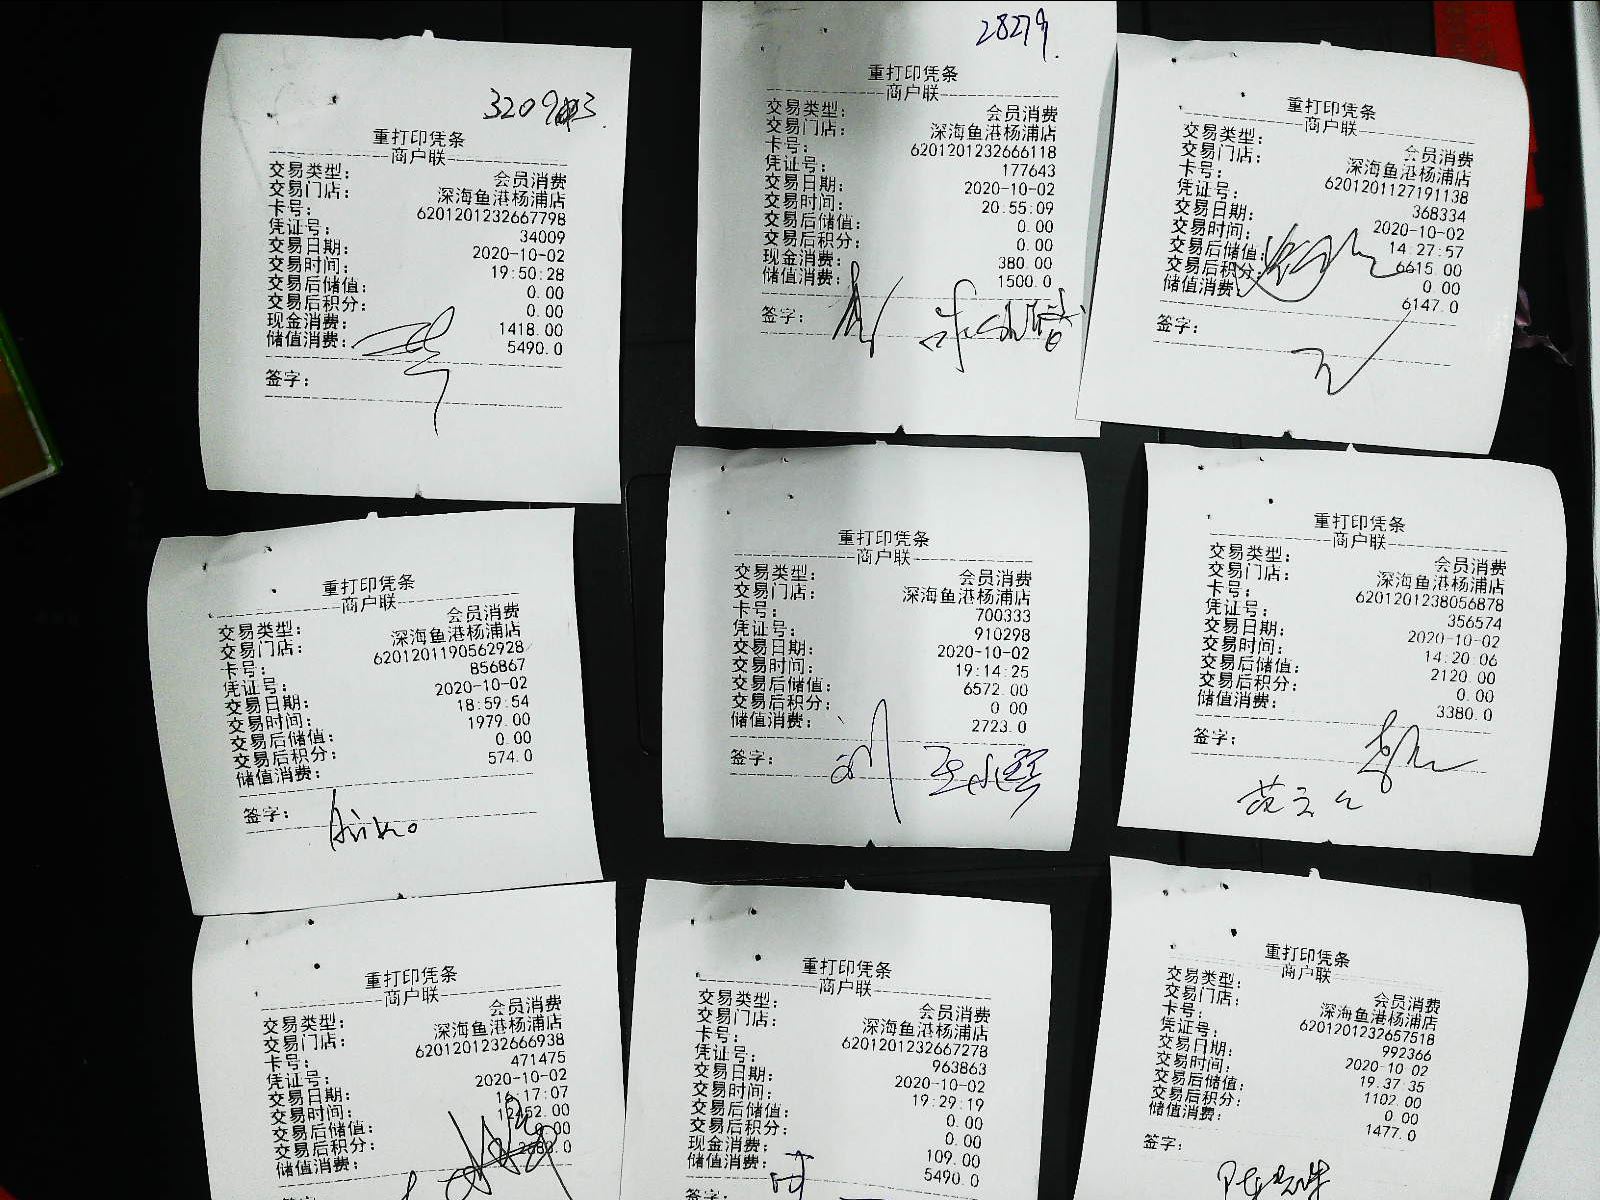 重打印凭条
商户联
交易类型： 会员消费
交易门店： 深海鱼港杨浦店
卡号： 6201201232667798
凭证号： 34009
交易日期： 2020-10-02
交易时间： 19:50:28
交易后储值： 0.00
交易后积分： 0.00
现金消费： 1418.00
储值消费： 5490.0
签字：
28279
重打印凭条
商户联
交易类型： 会员消费
交易门店： 深海鱼港杨浦店
卡号： 6201201232666118
凭证号： 177643
交易日期： 2020-10-02
交易时间： 20:55:09
交易后储值： 0.00
交易后积分： 0.00
现金消费： 380.00
储值消费： 1500.0
签字：
重打印凭条
商户联
交易类型： 会员消费
交易门店： 深海鱼港杨浦店
卡号： 6201201127191138
凭证号： 368334
交易日期： 2020-10-02
交易时间： 14:27:57
交易后储值： 6615.00
交易后积分： 0.00
储值消费： 6147.0
签字：
重打印凭条
商户联
交易类型： 会员消费
交易门店： 深海鱼港杨浦店
卡号： 6201201190562928
凭证号： 856867
交易日期： 2020-10-02
交易时间： 18:59:54
交易后储值： 1979.00
交易后积分： 0.00
储值消费： 574.0
签字： Aiko
重打印凭条
商户联
交易类型： 会员消费
交易门店： 深海鱼港杨浦店
卡号： 700333
凭证号： 910298
交易日期： 2020-10-02
交易时间： 19:14:25
交易后储值： 6572.00
交易后积分： 0.00
储值消费： 2723.0
签字：
重打印凭条
商户联
交易类型： 会员消费
交易门店： 深海鱼港杨浦店
卡号： 6201201238056878
凭证号： 356574
交易日期： 2020-10-02
交易时间： 14:20:06
交易后储值： 2120.00
交易后积分： 0.00
储值消费： 3380.0
签字：
重打印凭条
商户联
交易类型： 会员消费
交易门店： 深海鱼港杨浦店
卡号： 6201201232666938
凭证号： 471475
交易日期： 2020-10-02
交易时间：
交易后储值：
交易后积分： 0.00
储值消费：
签字：
重打印凭条
商户联
交易类型： 会员消费
交易门店： 深海鱼港杨浦店
卡号： 6201201232667278
凭证号： 963863
交易日期： 2020-10-02
交易时间： 19:29:19
交易后储值： 0.00
交易后积分： 0.00
现金消费： 109.00
储值消费： 5490.0
签字：
重打印凭条
商户联
交易类型： 会员消费
交易门店： 深海鱼港杨浦店
卡号： 6201201232657518
凭证号： 992366
交易日期： 2020-10-02
交易时间： 19:37:35
交易后储值： 1102.00
交易后积分： 0.00
储值消费： 1477.0
签字：